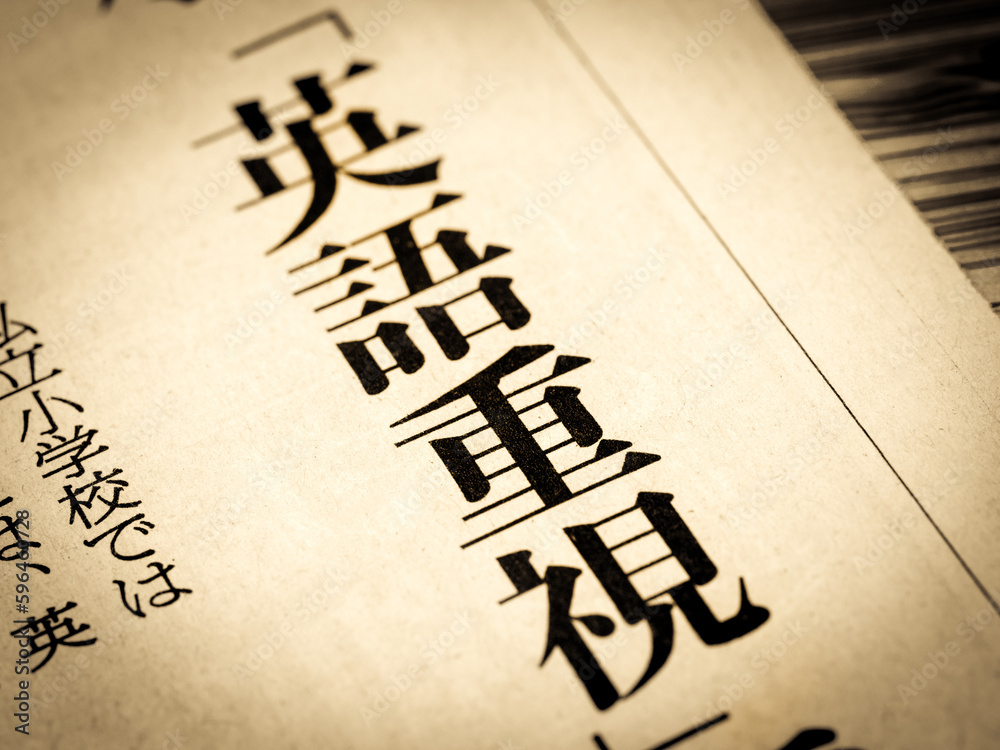 「英語重視」
私立小学校では
は、英
Adobe Stock | #596460728